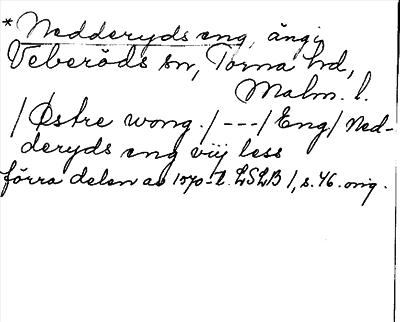 * Nedderyds eng, ängi
Veberöds sn, Torna hd,
Malm. l.
/Østre wong./---/Eng/ Ned-
deryds eng vij less
förra delen av 1570-t. LSLB 1, s. 46. orig.